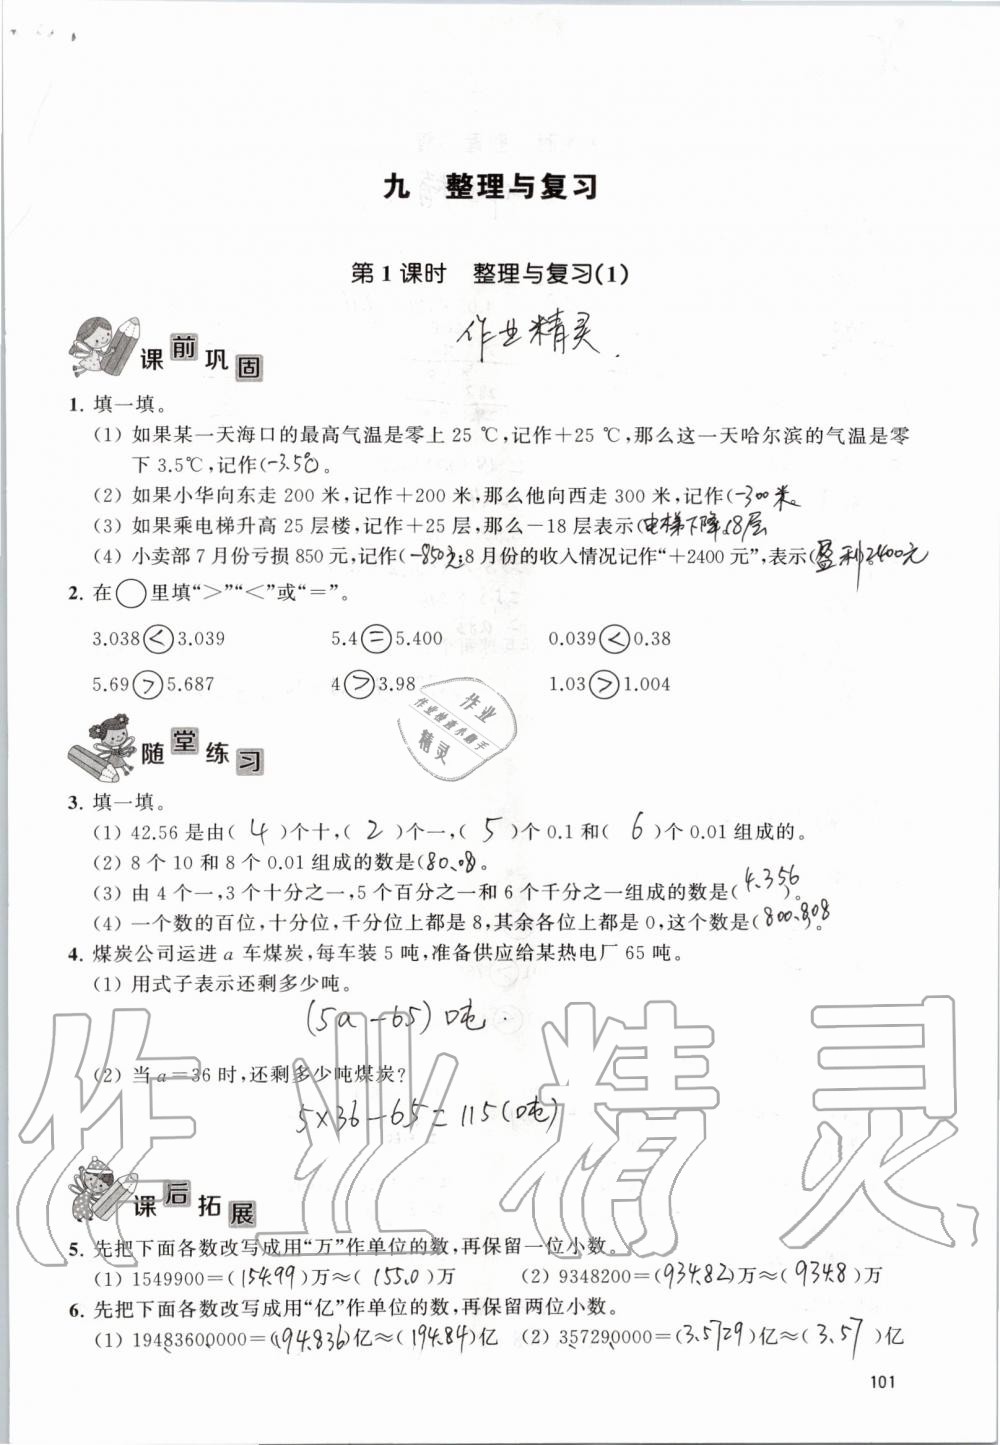 九 整理与复习
第1课时 整理与复习(1)
作业精灵
课前巩固
1. 填一填。
(1) 如果某一天海口的最高气温是零上 25 ℃,记作+25 ℃,那么这一天哈尔滨的气温是零
下 3.5℃,记作(-3.5℃)。
(2) 如果小华向东走 200 米,记作+200 米,那么他向西走 300 米,记作(-300米)。
(3) 如果乘电梯升高 25 层楼,记作+25 层,那么-18 层表示(电梯下降18层
(4) 小卖部 7 月份亏损 850 元,记作(-850元;8 月份的收入情况记作“+2400 元”,表示(盈利2400元
2. 在○里填“>”“<”或“=”。
3.038<3.039 5.4=5.400 0.039<0.38
5.69>5.687 4>3.98 1.03>1.004
作业
作业检查小助手
精灵
随堂练习
3. 填一填。
(1) 42.56 是由( 4 )个十,( 2 )个一,( 5 )个 0.1 和( 6 )个 0.01 组成的。
(2) 8 个 10 和 8 个 0.01 组成的数是(80.08)。
(3) 由 4 个一,3 个十分之一,5 个百分之一和 6 个千分之一组成的数是(4.356)。
(4) 一个数的百位,十分位,千分位上都是 8,其余各位上都是 0,这个数是(800.808)。
4. 煤炭公司运进 a 车煤炭,每车装 5 吨,准备供应给某热电厂 65 吨。
(1) 用式子表示还剩多少吨。
(5a-65)吨.
(2) 当 a=36 时,还剩多少吨煤炭?
5×36-65=115(吨)
作业精灵
课后拓展
5. 先把下面各数改写成用“万”作单位的数,再保留一位小数。
(1) 1549900=(154.99)万≈(155.0)万 (2) 9348200=(934.82)万≈(934.8)万
6. 先把下面各数改写成用“亿”作单位的数,再保留两位小数。
(1) 19483600000=(194.836)亿≈(194.84)亿 (2) 357290000=(3.5729)亿≈(3.57 )亿
101